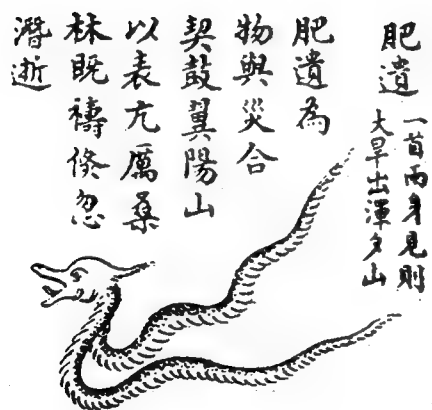 肥遺
一首兩身見則
大旱出渾夕山
肥遺為
物與災合
契鼓翼陽山
以表亢厲桑
林既禱倏忽
潛逝